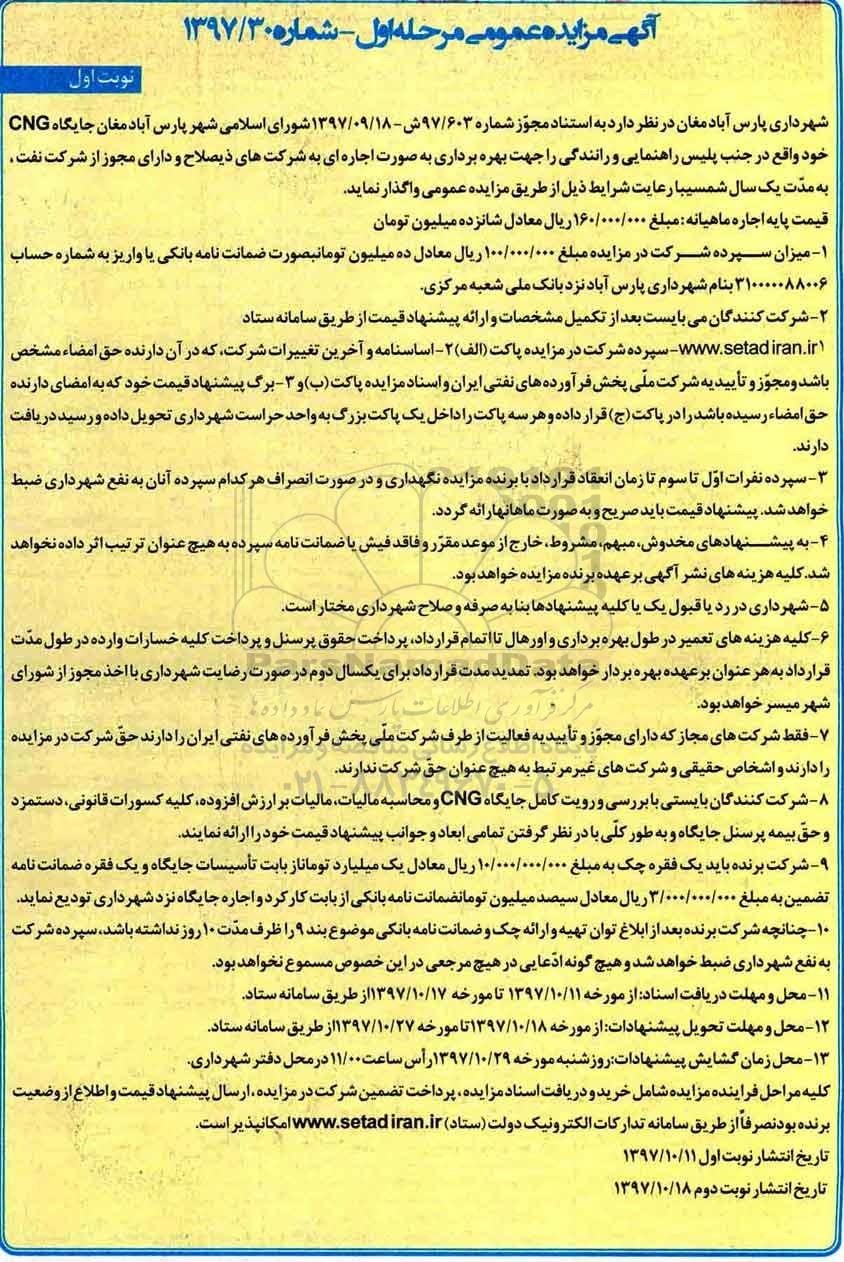 آگهی مزایده عمومی مرحله اول - شماره ۱۳۹۷/۳۰
نوبت اول
شهرداری پارس آباد مغان در نظر دارد به استناد مجوّز شماره ۹۷/۶۰۳ش - ۱۳۹۷/۰۹/۱۸ شورای اسلامی شهر پارس آباد مغان جایگاه CNG
خود واقع در جنب پلیس راهنمایی و رانندگی را جهت بهره برداری به صورت اجاره ای به شرکت های ذیصلاح و دارای مجوز از شرکت نفت ،
به مدّت یک سال شمسیبا رعایت شرایط ذیل از طریق مزایده عمومی واگذار نماید.
قیمت پایه اجاره ماهیانه : مبلغ ۱۶۰/۰۰۰/۰۰۰ ریال معادل شانزده میلیون تومان
۱- میزان سپرده شرکت در مزایده مبلغ ۱۰۰/۰۰۰/۰۰۰ ریال معادل ده میلیون تومانبصورت ضمانت نامه بانکی یا واریز به شماره حساب
۳۱۰۰۰۰۰۸۸۰۰۶ بنام شهرداری پارس آباد نزد بانک ملی شعبه مرکزی.
۲- شرکت کنندگان می بایست بعد از تکمیل مشخصات و ارائه پیشنهاد قیمت از طریق سامانه ستاد
www.setadiran.ir۱-سپرده شرکت در مزایده پاکت (الف)۲- اساسنامه و آخرین تغییرات شرکت، که در آن دارنده حق امضاء مشخص
باشدومجوّز و تأییدیه شرکت ملّی پخش فرآورده های نفتی ایران و اسناد مزایده پاکت (ب) و ۳- برگ پیشنهاد قیمت خود که به امضای دارنده
حق امضاء رسیده باشد را در پاکت (ج) قرار داده و هر سه پاکت را داخل یک پاکت بزرگ به واحد حراست شهرداری تحویل داده و رسید دریافت
دارند.
۳- سپرده نفرات اوّل تا سوم تا زمان انعقاد قرارداد با برنده مزایده نگهداری و در صورت انصراف هر کدام سپرده آنان به نفع شهرداری ضبط
خواهد شد. پیشنهاد قیمت باید صریح و به صورت ماهانهارائه گردد.
۴- به پیشنهادهای مخدوش، مبهم، مشروط، خارج از موعد مقرّر و فاقد فیش یا ضمانت نامه سپرده به هیچ عنوان ترتیب اثر داده نخواهد
شد. کلیه هزینه های نشر آگهی بر عهده برنده مزایده خواهد بود.
۵- شهرداری در رد یا قبول یک یا کلیه پیشنهادها بنا به صرفه و صلاح شهرداری مختار است.
۶- کلیه هزینه های تعمیر در طول بهره برداری و اورهال تااتمام قرارداد، پرداخت حقوق پرسنل و پرداخت کلیه خسارات وارده در طول مدّت
قرارداد به هر عنوان بر عهده بهره بردار خواهد بود. تمدید مدت قرارداد برای یکسال دوم در صورت رضایت شهرداری با اخذ مجوز از شورای
شهر میسر خواهد بود.
۷- فقط شرکت های مجاز که دارای مجوّز و تأییدیه فعالیت از طرف شرکت ملّی پخش فرآورده های نفتی ایران را دارند حقّ شرکت در مزایده
را دارند و اشخاص حقیقی و شرکت های غیر مرتبط به هیچ عنوان حقّ شرکت ندارند.
۸- شرکت کنندگان بایستی با بررسی و رویت کامل جایگاه CNG و محاسبه مالیات، مالیات بر ارزش افزوده، کلیه کسورات قانونی، دستمزد
و حقّ بیمه پرسنل جایگاه و به طور کلّی با در نظر گرفتن تمامی ابعاد و جوانب پیشنهاد قیمت خود را ارائه نمایند.
۹- شرکت برنده باید یک فقره چک به مبلغ ۱۰/۰۰۰/۰۰۰/۰۰۰ ریال معادل یک میلیارد توماناز بابت تأسیسات جایگاه و یک فقره ضمانت نامه
تضمین به مبلغ ۳/۰۰۰/۰۰۰/۰۰۰ ریال معادل سیصد میلیون تومانضمانت نامه بانکی از بابت کارکرد و اجاره جایگاه نزد شهرداری تودیع نماید.
۱۰- چنانچه شرکت برنده بعد از ابلاغ توان تهیه و ارائه چک و ضمانت نامه بانکی موضوع بند ۹ را ظرف مدّت ۱۰ روز نداشته باشد، سپرده شرکت
به نفع شهرداری ضبط خواهد شد و هیچ گونه ادّعایی در هیچ مرجعی در این خصوص مسموع نخواهد بود.
۱۱- محل و مهلت دریافت اسناد: از مورخه ۱۳۹۷/۱۰/۱۱ تا مورخه ۱۳۹۷/۱۰/۱۷از طریق سامانه ستاد.
۱۲- محل و مهلت تحویل پیشنهادات: از مورخه ۱۳۹۷/۱۰/۱۸ تا مورخه ۱۳۹۷/۱۰/۲۷از طریق سامانه ستاد.
۱۳- محل زمان گشایش پیشنهادات:روز شنبه مورخه ۱۳۹۷/۱۰/۲۹ رأس ساعت ۱۱/۰۰ درمحل دفتر شهرداری.
کلیه مراحل فرایندمزایده شامل خرید و دریافت اسناد مزایده، پرداخت تضمین شرکت در مزایده، ارسال پیشنهاد قیمت و اطلاع از وضعیت
برنده بودنصرفاً از طریق سامانه تدارکات الکترونیک دولت (ستاد) www.setadiran.ir امکانپذیر است.
تاریخ انتشار نوبت اول ۱۳۹۷/۱۰/۱۱
تاریخ انتشار نوبت دوم ۱۳۹۷/۱۰/۱۸